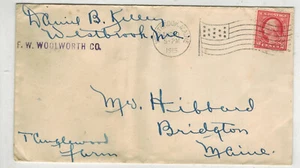 Daniel B. Kelley
Westbrook, Me
F. W. WOOLWORTH CO.
Mr Hibbard
Bridgton
Maine.
Tanglewood
Farm